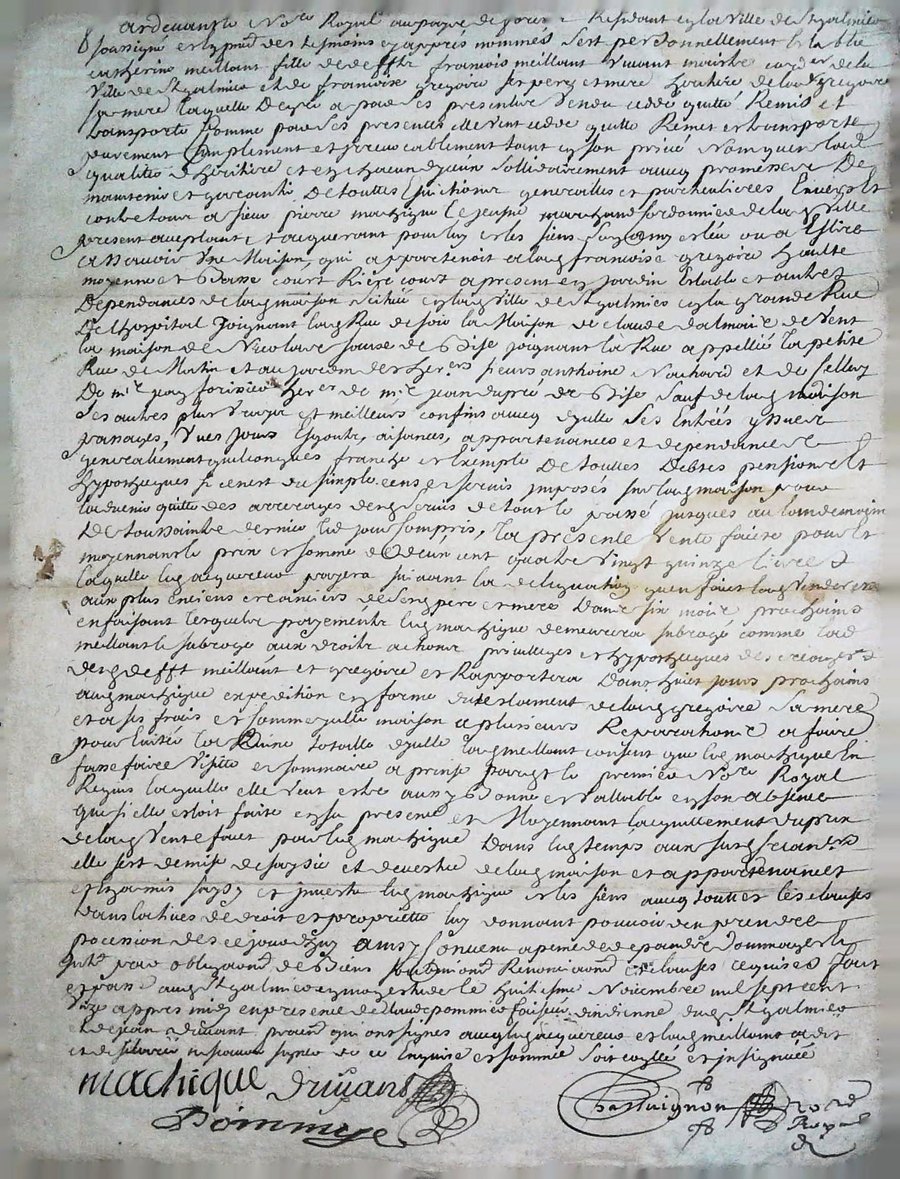 Pardevant le No.re Royal au pays de forez Residant en la Ville de St galmier
soussigné et en pnce des tesmoins cy apprés nommés s'est personnellement Establie
catherine meillant fille de defft françois meillant vivant maistre cord.er de la
Ville de St galmier et de françoise gregoire ses pere et mere heritiere de lad. gregoire
sa mere laquelle de gré a par ces presentes vendu cedé quitté Remis et
transporté comme par ces presentes elle vent cedde quitte Remet et transporte
purement simplement et irrevocablement tant en son privé nom que
qualité d'heritiere et en chacun d'iceux sollidairement avecq promesse de
maintenir et garentir de touttes Evictions generalles et particulieres Envers et
contre tous a sieur pierre machigue le jeune marchand cordonnier de lad. Ville
present acceptant et acquerant pour luy et les siens son amy esleu ou a Eslire
assavoir Une Maison, qui appartenoit a lad. françoise gregoire haulte
moyenne et basse court Riere court a present en jardin Estable et autres
Dependances de lad. maison scituée en lad. Ville de St galmier en la grande Rue
De l'hospital Joignant lad. Rue de soir la Maison de claude dalmais de vent
la maison de Nicolas de bise joignant la Rue appellée la petite
Rue de matin et au jardin des hers sieurs anthoine Nachard et de
De m.re her.er de m.re jean dupré de Bise sauf de lad. maison
ses autres plus vrays et meilleurs confins avecq d'ycelle ses Entrées yssues
passages, Vues Jours Esgouts, aisances, appartenances et dependances
generallement quelconques franche et Exempte De touttes Debtes pensions et
hypotheques si ce n'est du simple cens et servis imposés sur lad. maison pour
quitte des arrerages desd. servis de tout le passé jusques au lendemain
De toussaintz dernier led. jour compris, la presente vente faitte pour et
moyennant le prix et somme de Deux cent quatre vingt quinze livres
laquelle led. acquereur payera suivant la delegation qu'en fait lad. venderesse
aux plus enciens creanciers de sesd. pere et mere Dans six mois prochains
en faisant lesquels payements led. machigue demeurera subrogé comme lad.
meillant le subroge aux droits actions privilleges et hypotheques des creanciers
desd. deffts meillant et gregoire et Rapportera Dans huit jours prochains
aud. machigue expedition en forme du testament de lad. gregoire sa mere
et a ses frais et comme y celle maison a plusieurs Reparations a faire
pour Eviter la Ruine totalle d'ycelle lad. meillant consent que led. machigue en
fasse faire Visite et sommaire a prinse par le premier No.re Royal
Requis laquelle elle veut estre aussy Bonne et vallable en son absence
que si elle estoit faite en sa presence et Moyennant lacquittement du prix
de lad. Vente fait par led. machigue Dans led. temps aux susd. creanciers
elle s'est demise desaysie et devestue de lad. maison et appartenances
et en a mis saysy et investu led. machigue et les siens avecq touttes les clauses
translatives de droit et proprietté luy donnant pouvoir d'en prendre
possession des ce jourd'huy ainsy convenu a peine de depans dommages et
intt. par obligaon de Biens soubmions Renonciaons clauses requises fait
et passé aud. St galmier en mon estude le huitiesme Novembre mil sept cent
Unze appres midy en presence de claude pommier faiseur d'indienne dud. St galmier
et de jean duvant qui ont signes avecq led. acquereur et lad. meillant a dit
et desclaré ne sçavoir signer de ce Enquise et sommée soit et insignuée
machigue Duvant
Pommyer
Chassaignon No.re
Royal